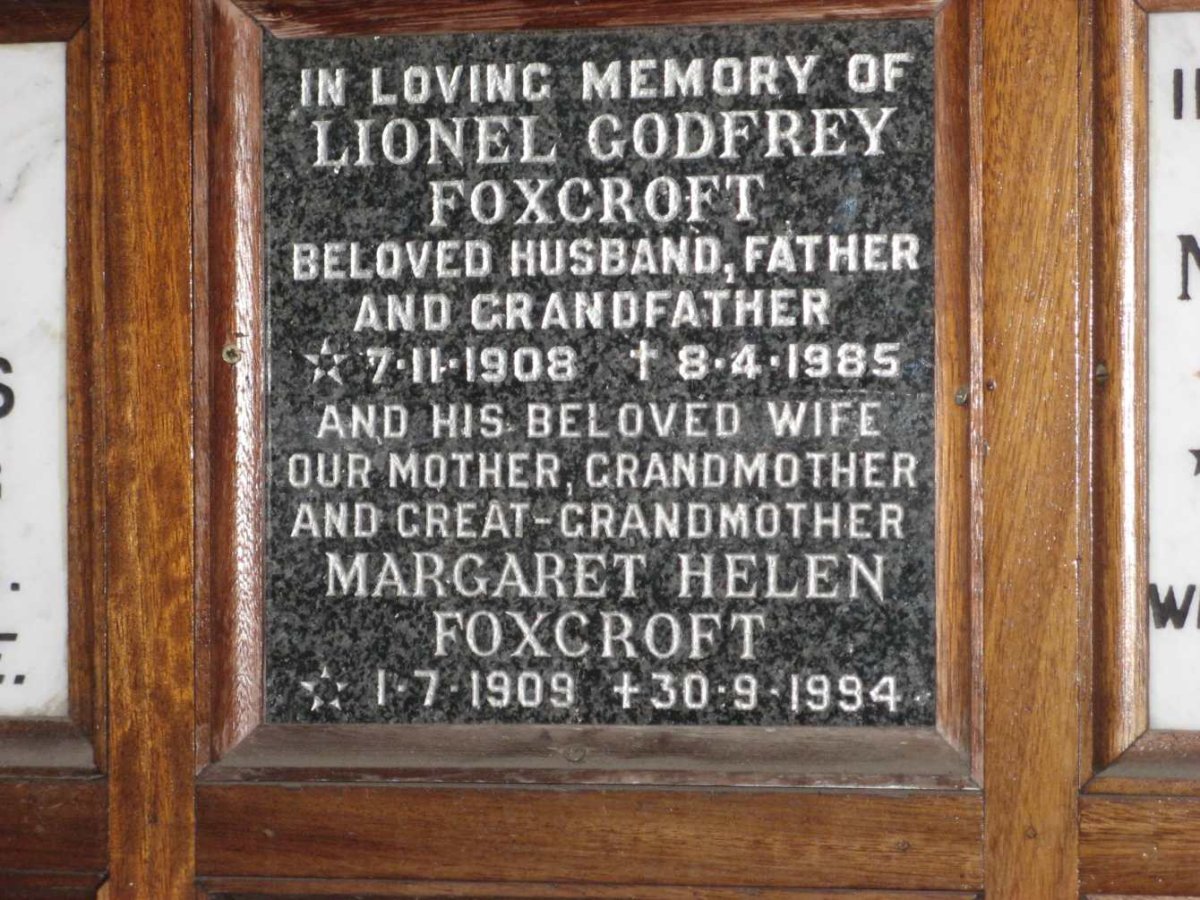 IN LOVING MEMORY OF
LIONEL GODFREY
FOXCROFT
BELOVED HUSBAND, FATHER
AND GRANDFATHER
☆ 7·11·1908 † 8·4·1985
AND HIS BELOVED WIFE
OUR MOTHER, GRANDMOTHER
AND GREAT-GRANDMOTHER
MARGARET HELEN
FOXCROFT
☆ 1·7·1909 † 30·9·1994